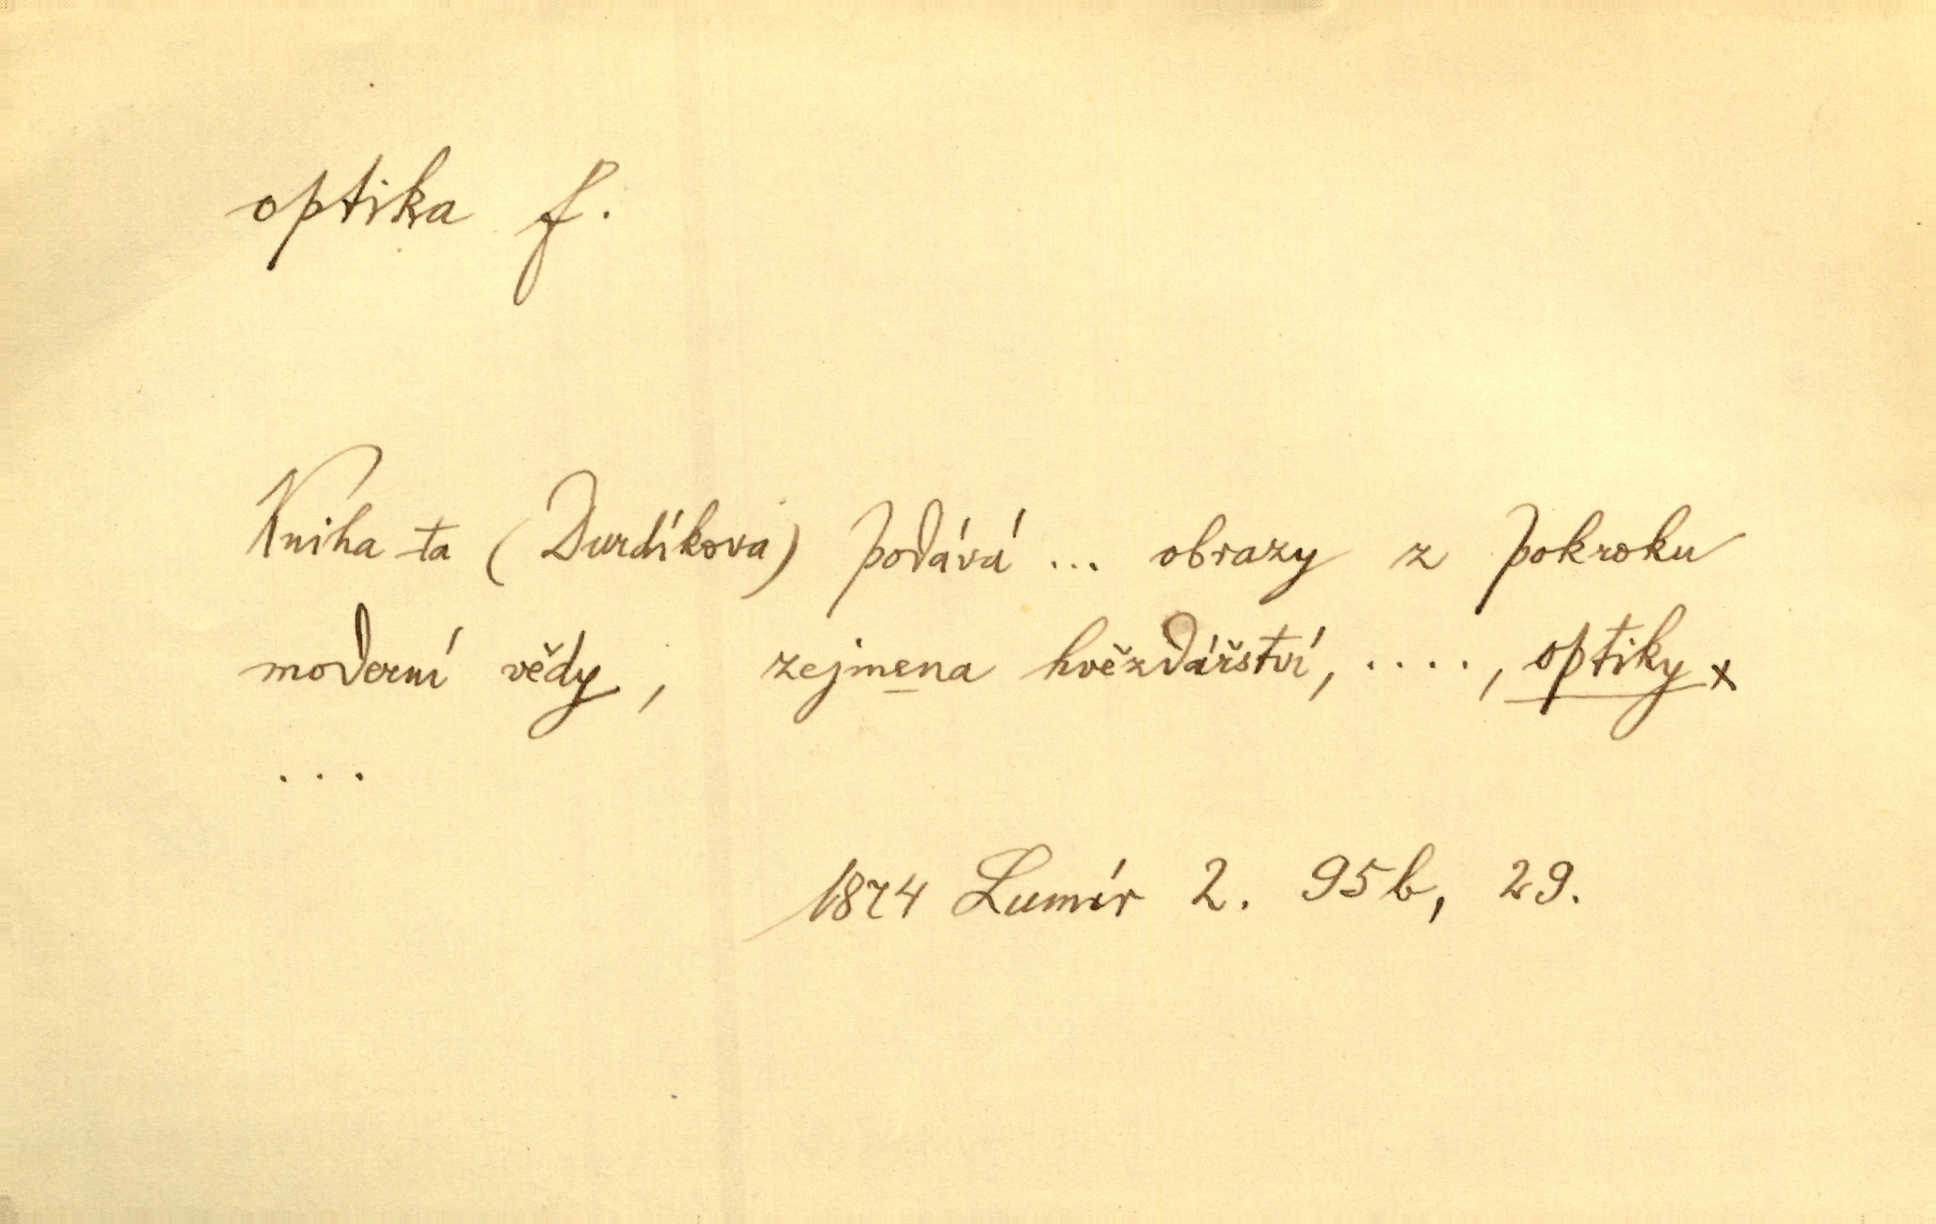 optika f.
Kniha ta (Durdíkova) podává ... obrazy z pokroku
moderní vědy, zejmena hvězdářství, ...., optiky x
...
1874 Lumír 2. 95b, 29.